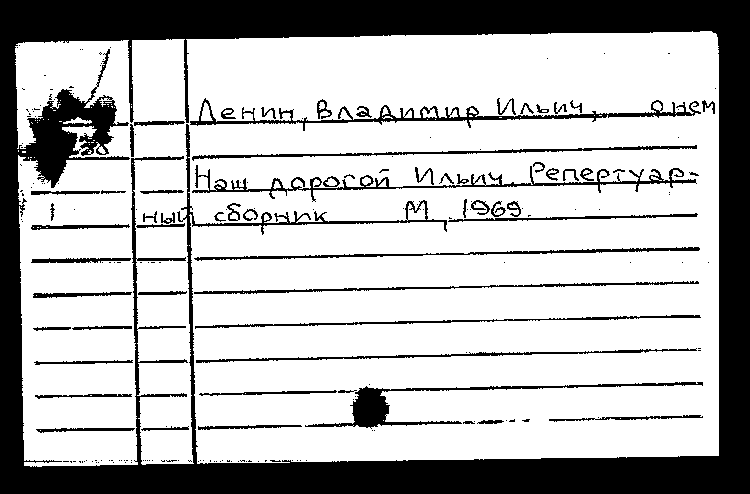 Ленин, Владимир Ильич, о нем
30
Наш дорогой Ильич. Репертуар-
1 ный сборник М, 1969.